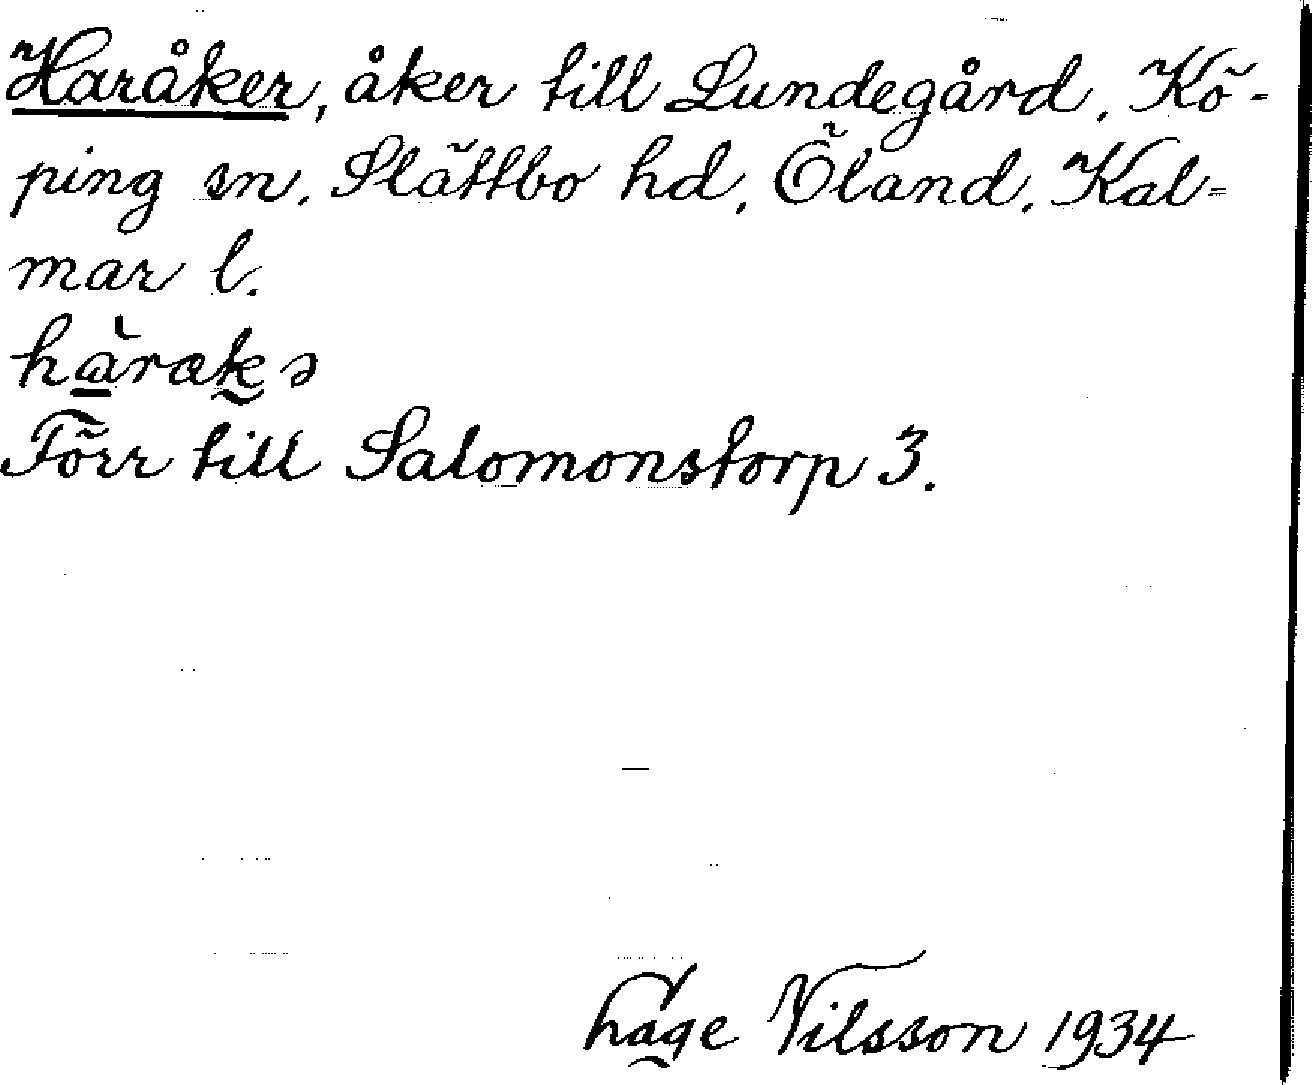 Haråker, åker till Lundegård. Kö-
ping sn. Slättbo hd. Öland. Kal-
mar l.
Förr till Salomonstorp 3.
Nilsson 1934